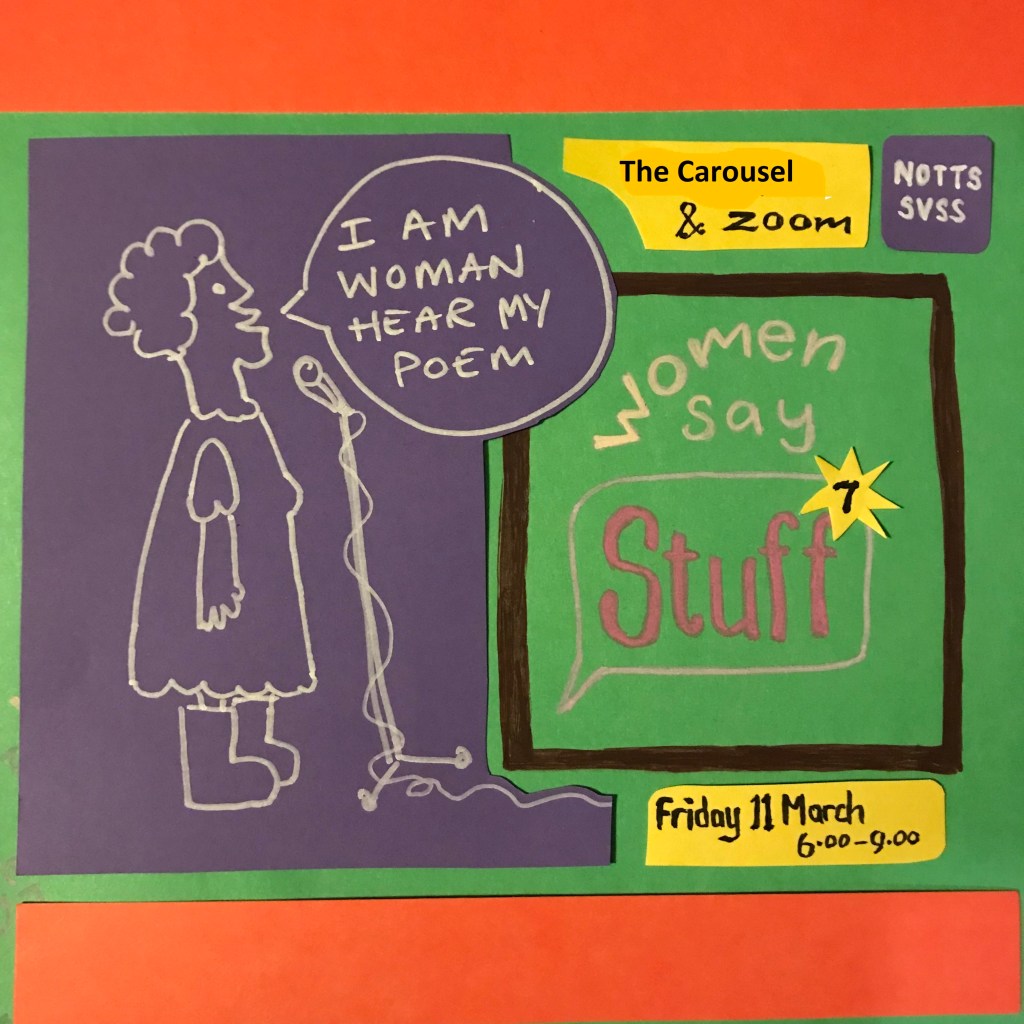 I AM
WOMAN
HEAR MY
POEM
The Carousel
& ZOOM
NOTTS
SVSS
Women
say
Stuff
7
Friday 11 March
6.00-9.00